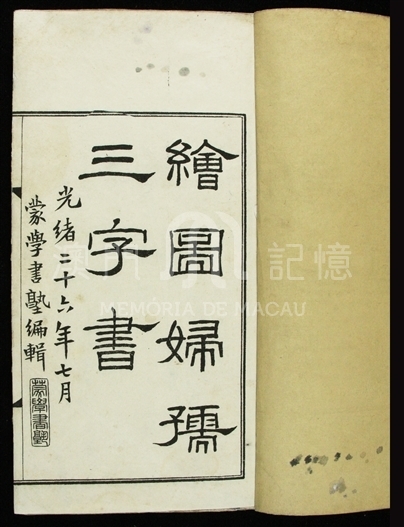 繪圖婦孺
三字書
光緒二十六年七月
蒙學書塾編輯
蒙學書塾
澳門記憶
MEMÓRIA DE MACAU